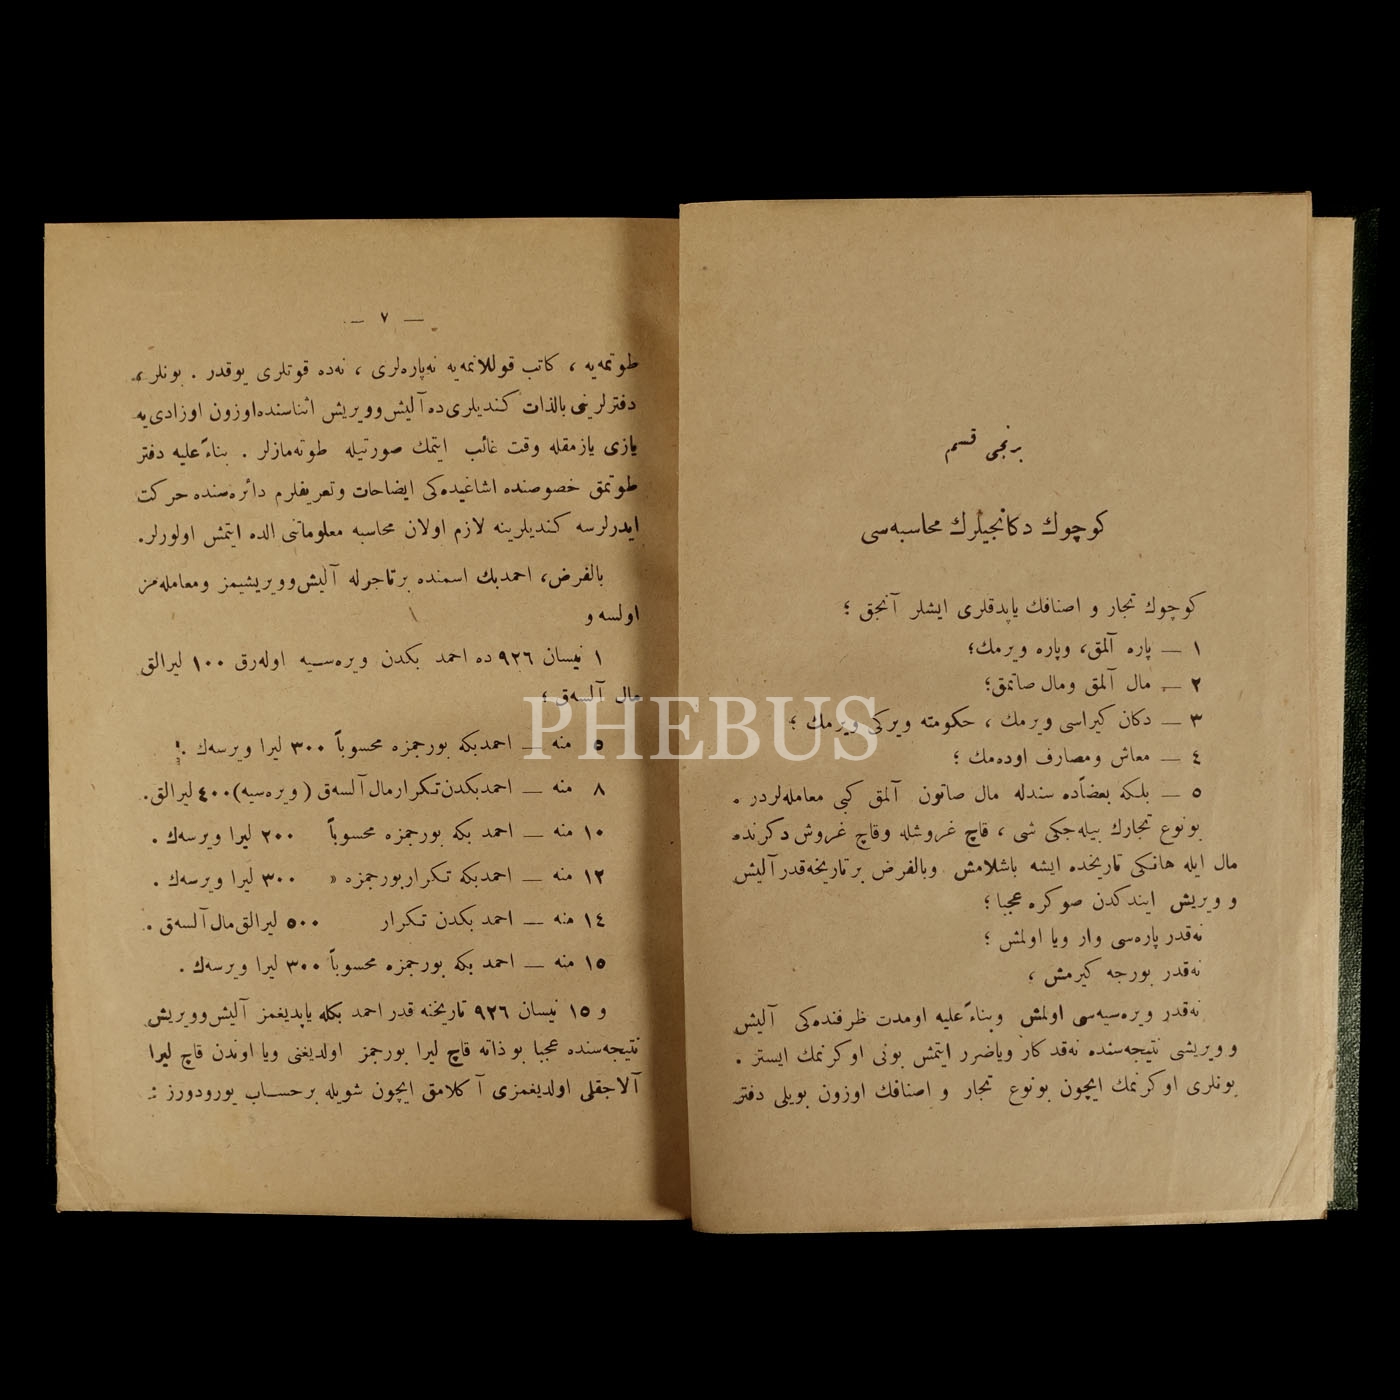 برنجی قسم
كوچوك دكانجیلرك محاسبه‌سی
كوچوك تجار و اصنافك یاپدقلری ایشلر آنجق ؛
١ — پاره آلمق، وپاره ویرمك؛
٢ — مال آلمق ومال صاتمق؛
٣ — دكان كیراسی ویرمك ، حكومته ویركی ویرمك ؛
٤ — معاش ومصارف اوده‌مك ؛
٥ — بلكه بعضاً‌ده سندله مال صاتون آلمق كبی معامله‌لردر .
بونوع تجارك بیله‌جكی شی ، قاچ غروشله وقاچ غروش دكرنده
مال ایله هانكی تاریخده ایشه باشلامش وبالفرض برتاریخه‌قدر آلیش
و ویریش ایندكدن صوكره عجبا ؛
نه‌قدر پاره‌سی وار ویا اولمش ؛
نه‌قدر بورجه كیرمش ،
نه‌قدر ویره‌سیه‌سی اولمش وبناءً علیه اومدت ظرفنده‌كی آلیش
و ویریشی نتیجه‌سنده نه‌قدكار ویاضرر ایتمش بونی اوكرنمك ایستر .
بونلری اوكرنمك ایچون بونوع تجار و اصنافك اوزون بویلی دفتر
— ٧ —
طوتمه‌یه ، كاتب قوللانمه‌یه نه‌پاره‌لری ، نه‌ده قوتلری یوقدر . بونلر ،
دفترلرینی بالذات كندیلری‌ده آلیش‌وویریش اثناسنده‌اوزون اوزادی‌یه
یازی یازمقله وقت غائب ایتمك صورتیله طوته‌مازلر . بناءً علیه دفتر
طوتمق خصوصنده اشاغیده‌كی ایضاحات وتعریفلرم دائره‌سنده حركت
ایدرلرسه كندیلرینه لازم اولان محاسبه معلوماتنی الده ایتمش اولورلر.
بالفرض، احمدبك اسمنده برتاجرله آلیش‌وویریشیمز ومعامله‌مز
اولسه و
١ نیسان ٩٢٦ ده احمد بكدن ویره‌سـیه اوله‌رق ١٠٠ لیرالق
مال آلسه‌ق ؛
PHEBUS
٥ منه — احمدبكه بورجمزه محسوباً ٣٠٠ لیرا ویرسه‌ك .
٨ منه — احمدبكدن‌تكرارمال آلسه‌ق ( ویره‌سیه)٤٠٠ لیرالق.
١٠ منه — احمد بكه بورجمزه محسوباً ٢٠٠ لیرا ویرسه‌ك .
١٢ منه — احمدبكه تكراربورجمزه « ٣٠٠ لیرا ویرسه‌ك .
١٤ منه — احمد بكدن تكرار ٥٠٠ لیرالق‌مال آلسه‌ق .
١٥ منه — احمد بكه بورجمزه محسوباً ٣٠٠ لیرا ویرسه‌ك .
و ١٥ نیسان ٩٢٦ تاریخنه قدر احمد بكله یاپدیغمز آلیش‌وویریش
نتیجه‌سنده عجبا بو ذاته قاچ لیرا بورجمز اولدیغنی ویا اوندن قاچ لیرا
آلاجقلی اولدیغمزی آكلامق ایچون شویله برحسـاب یورودورز :